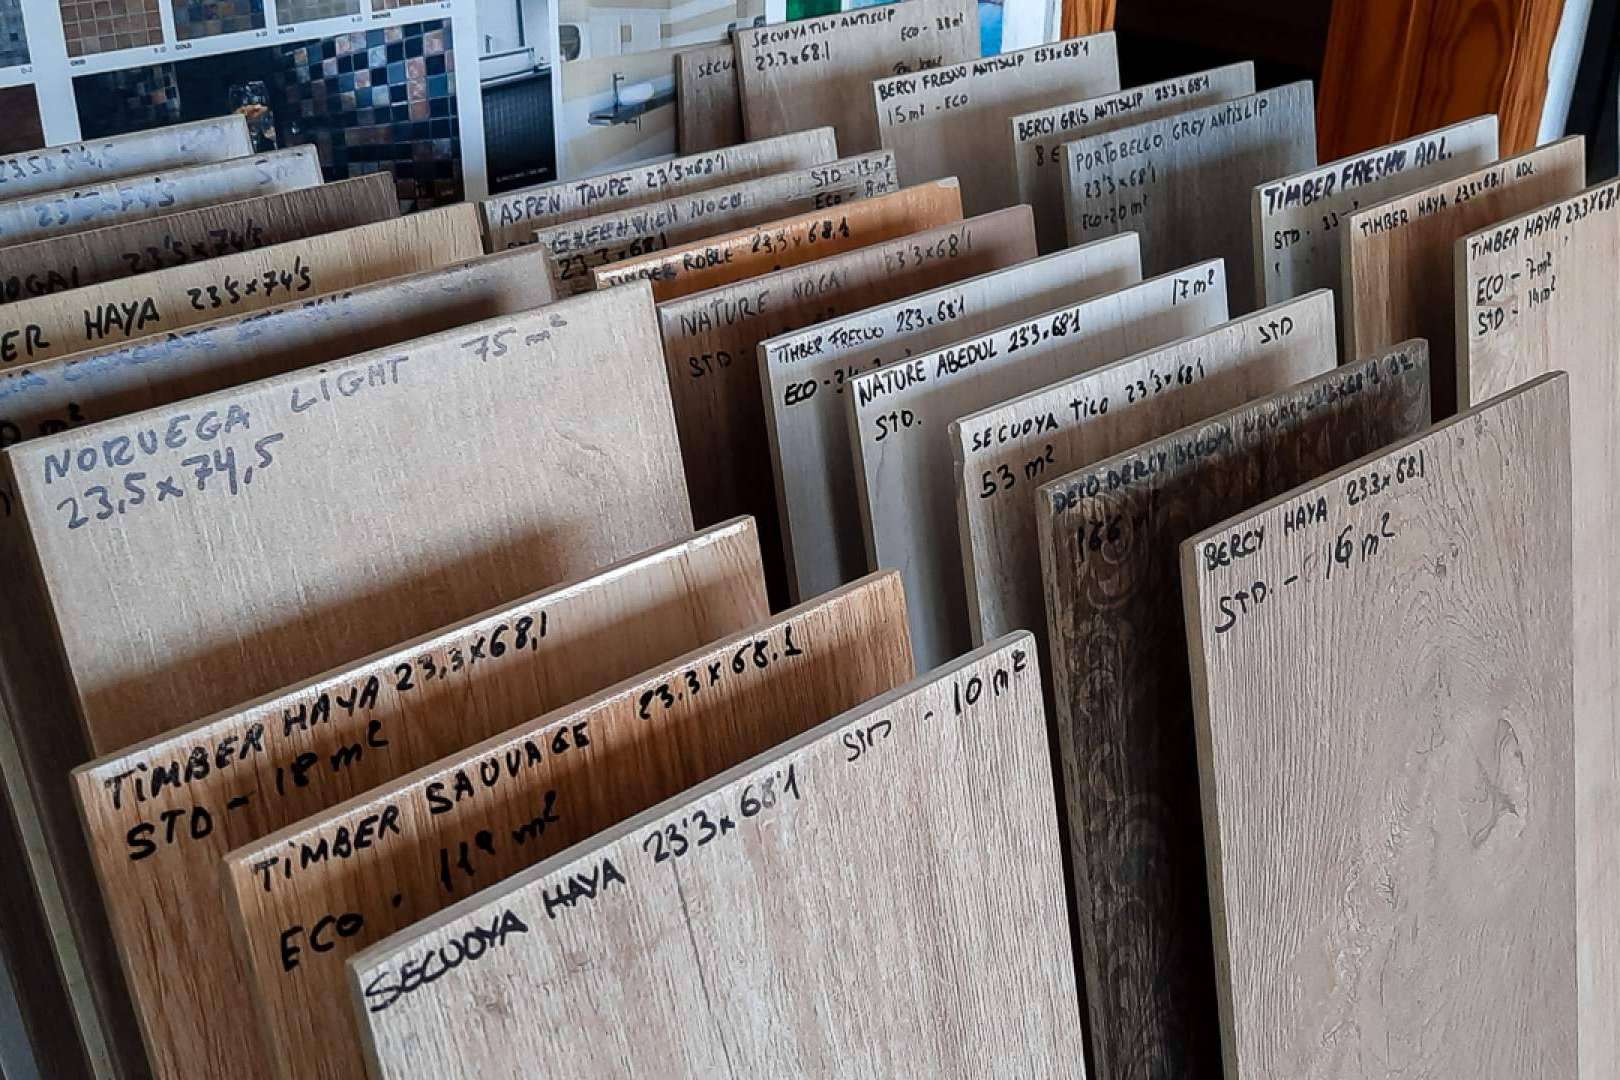 SECUOYA TILO ANTISLIP
ECO - 38 m²
23.3x68.1
SECU
BERCY FRESNO ANTISLIP 23'3x68'1
15 m² - ECO
BERCY GRIS ANTISLIP 23'3x68'1
8 E
PORTOBELLO GREY ANTISLIP
23'3x68'1
ECO-20 m²
TIMBER FRESNO ADL.
STD - 33
TIMBER HAYA 23.3x68.1 ADL
TIMBER HAYA 23.3x68,1
ECO - 7 m²
STD - 14 m²
23.5x74,5
23'5x74'5
5 m²
NOGAL 23'5x74'5
BER HAYA 23'5x74'5
ASPEN TAUPE 23'3x68'1
GREENWICH NOCO
STD - 13 m²
ECO - 8 m²
23.3x68.1
TIMBER ROBLE 23,3x68.1
NATURE NOGAL 23'3x68'1
STD -
TIMBER FRESNO 23'3x68'1
ECO -
NATURE ABEDUL 23'3x68'1
17 m²
STD.
SECUOYA TILO 23'3x68'1
STD
53 m²
DECO BERCY BLOOM NOGAL 23'3x68'1
166
BERCY HAYA 23.3x68.1
STD. - 16 m²
NORUEGA LIGHT 75 m²
23,5x74,5
TIMBER HAYA 23,3x68,1
STD - 18 m²
TIMBER SAUVAGE 23.3x68.1
ECO - 119 m²
SECUOYA HAYA 23'3x68'1
STD - 10 m²